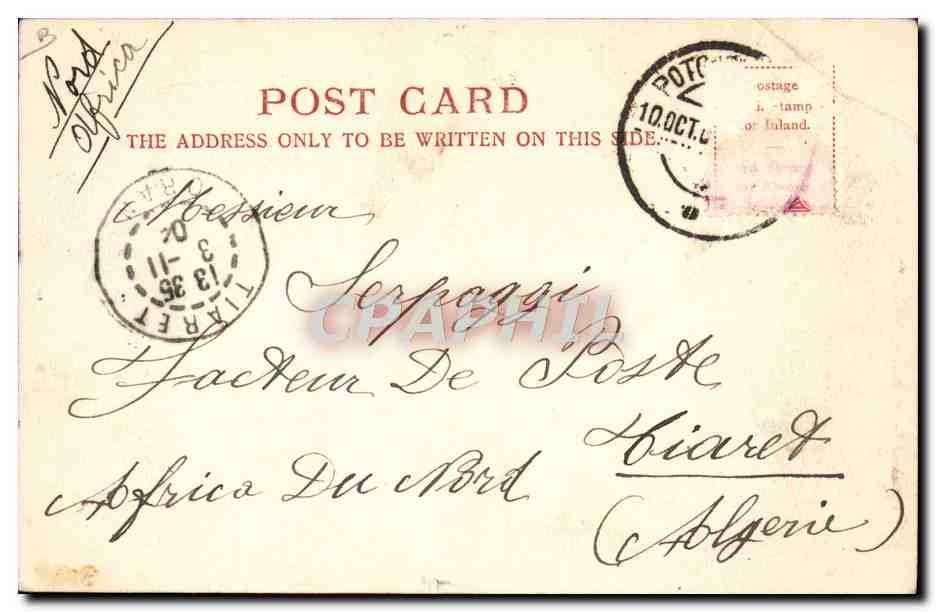 Nord
africa
POST CARD
THE ADDRESS ONLY TO BE WRITTEN ON THIS SIDE.
10.OCT.
ostage
tamp
Inland.
TIARET
ORAN
13 35
3 -11
04
Messieur
Serpaggi
CPAPHIL
Facteur De Poste
Tiaret
Africa Du Nord
(Algerie)